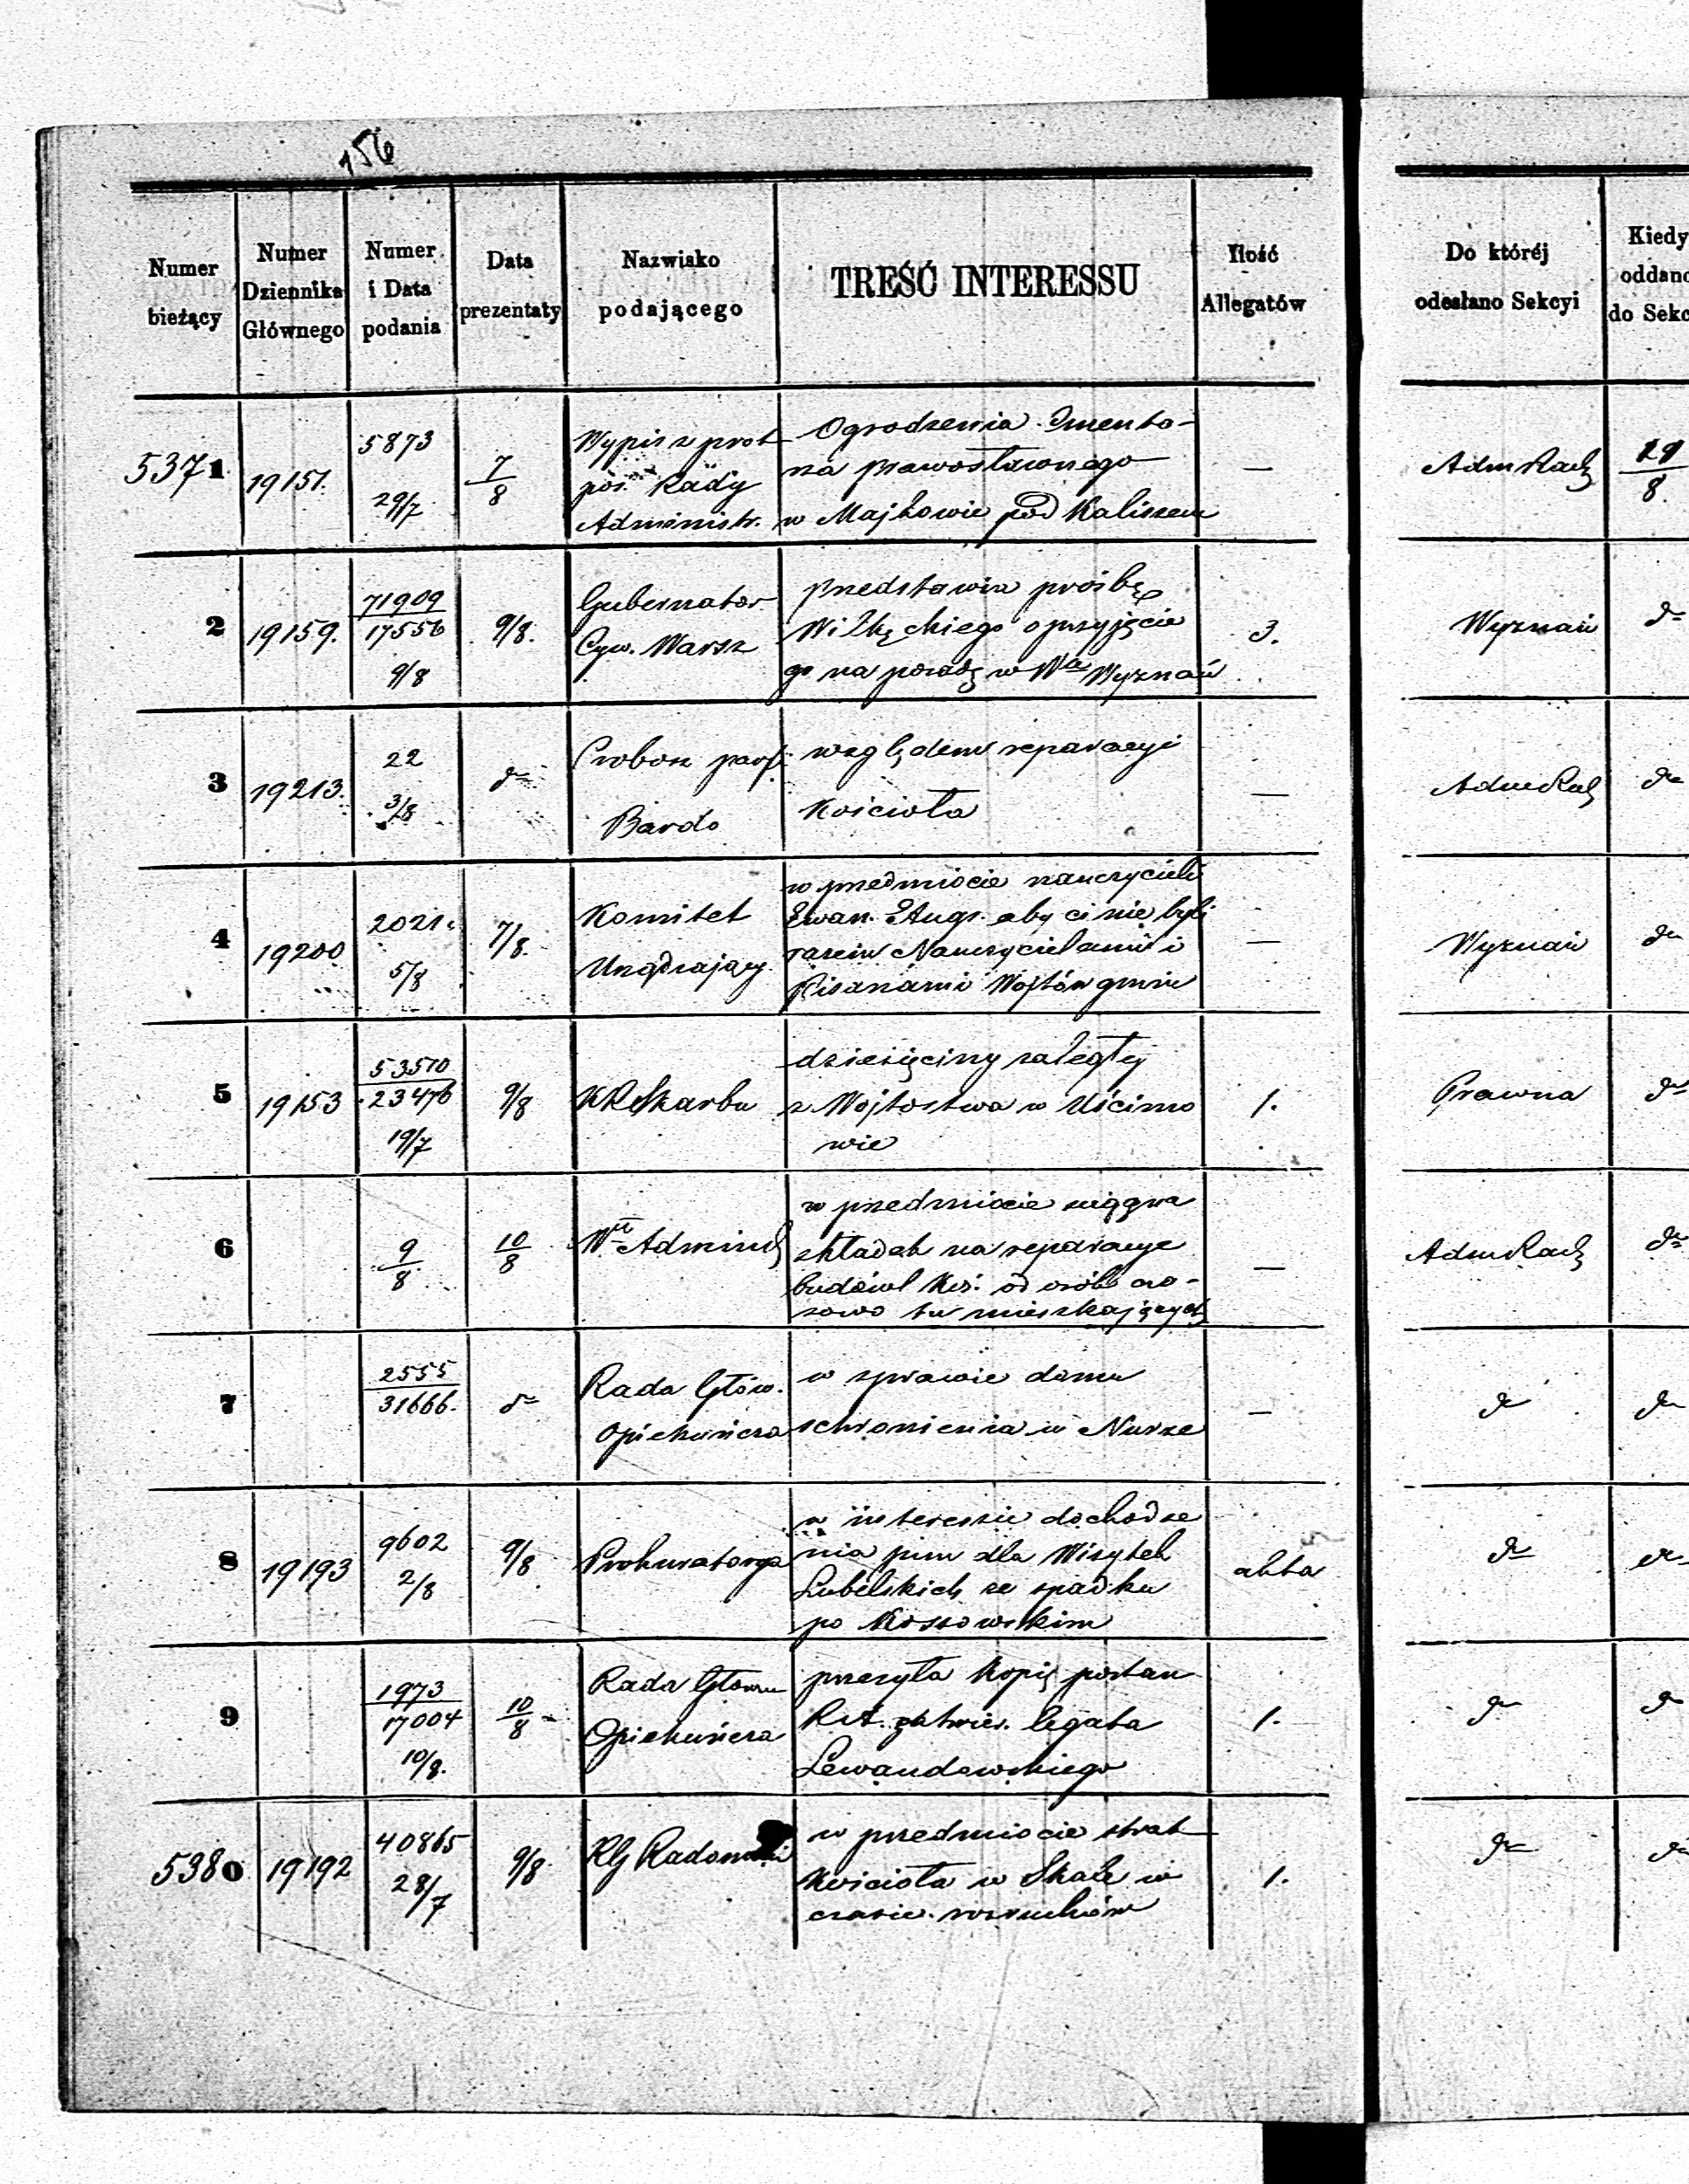 156
Numer bieżący
Numer Dziennika Głównego
Numer i Data podania
Data prezentaty
Nazwisko podającego
TREŚĆ INTERESSU
Ilość Allegatów
Do któréj odesłano Sekcyi
Kiedy oddano do Sekc
5371
19151.
5873
29/7
7/8
Wypis z prot
pos. Rady
Administr.
Ogrodzenia Smenta-
rza prawosławnego
w Majkowie pod Kaliszem
—
Adm Rach
29/8.
2
19159.
71909
17556
9/8
9/8.
Gubernator
Cyw. Warsz
przedstawia prośbę
o przyjęcie
go na posadę w Wle Wyznań
3.
Wyznań
do
3
19213.
22
3/8
do
Probosz parf.
Bardo
względem reparacyi
Kościoła
—
Adm Rach
do
4
19200
2021.
5/8
7/8.
Komitet
Urządzający
w przedmiocie nauczycieli
Ewan. Augs. aby ci nie byli
razem Nauczycielami i
Pisarzami Wojtów gmin
—
Wyznań
do
5
19153
53510
23476
19/7
9/8
KRSkarbu
dziesięciny zaległej
z Wojtostwa w Uścimo
wie
1.
Prawna
do
6
9/8
10/8
Wł Admin
w przedmiocie
składek na reparacye
budowl Koś. od osób cza-
sowo tu mieszkających
—
Adm Rach
do
7
2555
31666.
do
Rada Głów.
Opiekuńcza
w sprawie domu
schronienia w Nurze
—
do
do
8
19193
9602
2/8
9/8
Prokuratorya
w interessie dochodze
nia sum dla Wizytek
Lubelskich ze spadku
po Kossowskim
akta
do
do
9
1973
17004
10/8.
10/8
Rada Główn
Opiekuńcza
przesyła Kopię postan
RA. zatwier. legata
Lewandowskiego
1.
do
do
5380
19192
40865
28/7
9/8
RG Radomski
w przedmiocie strat
Kościoła w Skale w
czasie rozruchów
1.
do
do